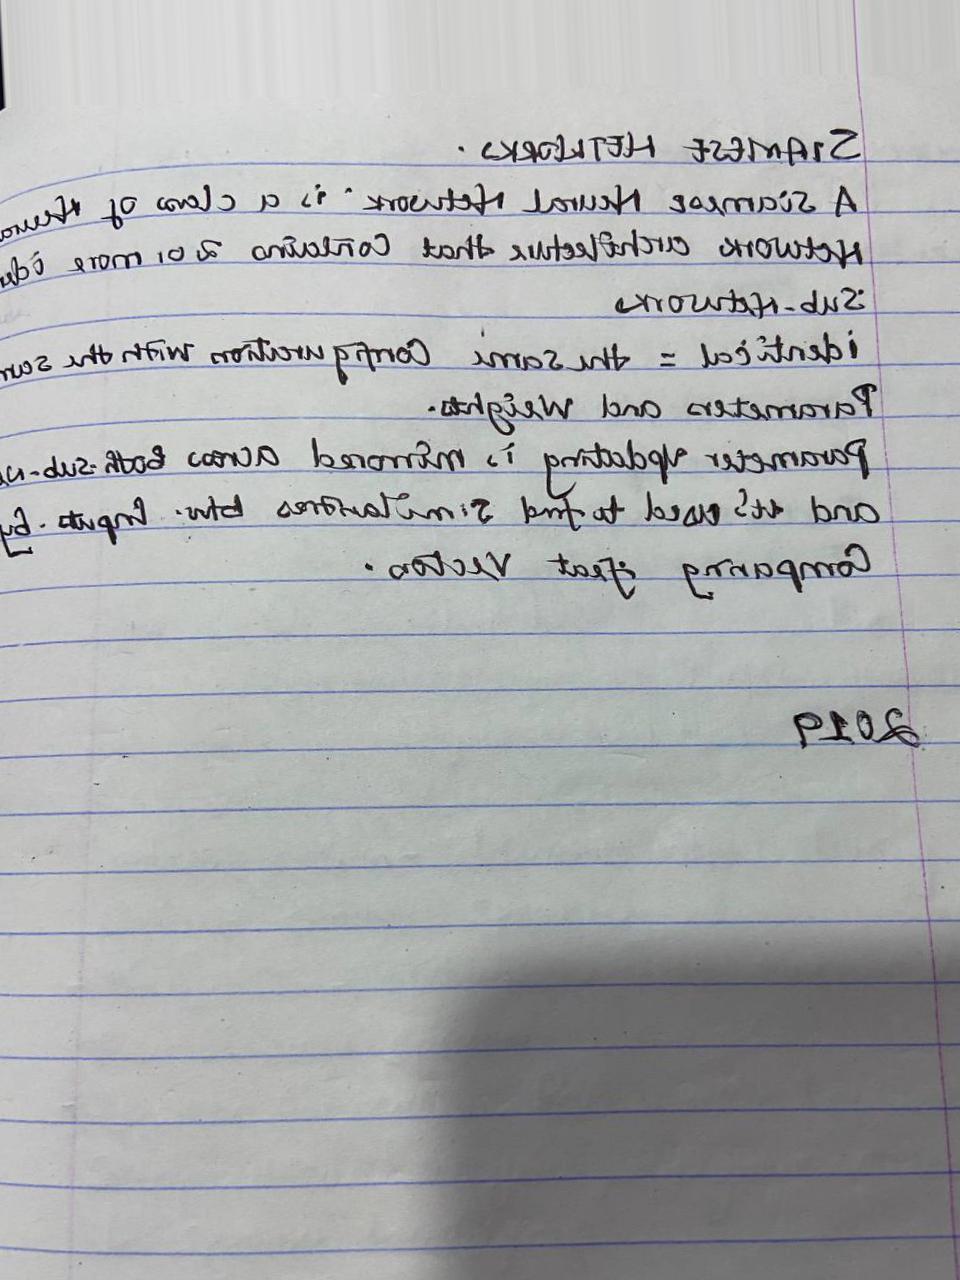 SIAMESE NETWORKS.
A Siamese Neural Network. is a class of Neura
Network architecture that contains 2 or more iden
Sub-Networks
identical = the same Configuration with the sam
Parameters and Weights.
Parameter updating is mirrored across both sub-n
and it's used to find Similarities btw. Inputs. by
Comparing feat Vectors.
2019